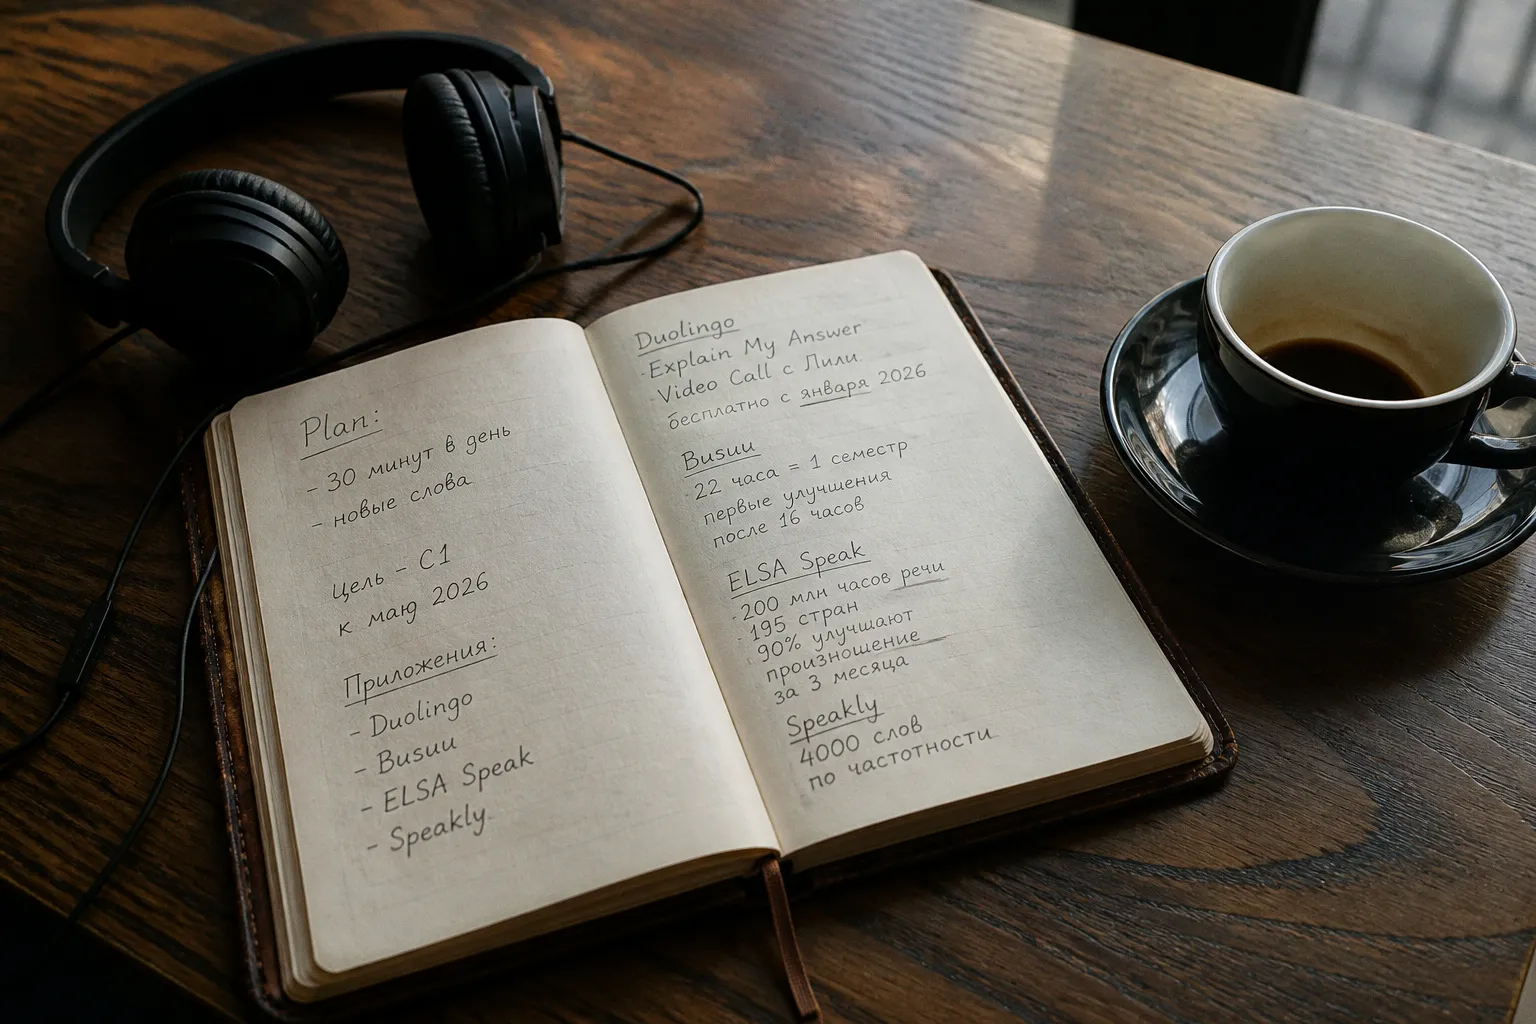 Plan:
- 30 минут в день
- новые слова
Цель - C1
к маю 2026
Приложения:
- Duolingo
- Busuu
- ELSA Speak
- Speakly.
Duolingo
- Explain My Answer
- Video Call с Лили.
бесплатно с января 2026
Busuu
- 22 часа = 1 семестр
первые улучшения
после 16 часов
ELSA Speak
- 200 млн часов речи
- 195 стран
90% улучшают
произношение
за 3 месяца
Speakly
4000 слов
по частотности